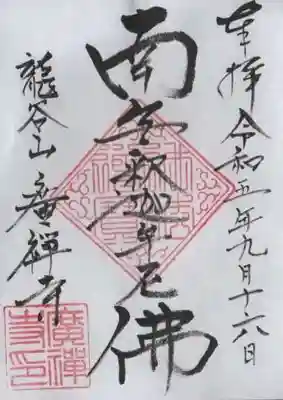 奉拝 令和五年九月十六日
南無釈迦牟尼佛
龍谷山 廣禅寺
廣禅寺印